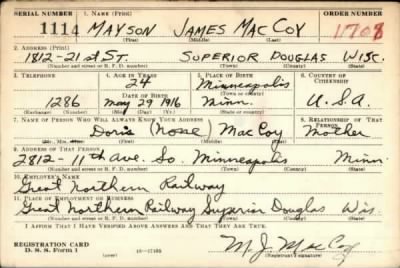 SERIAL NUMBER 1. NAME (Print) ORDER NUMBER
1114 MAYSON JAMES MACCOY 1708
(First) (Middle) (Last)
2. ADDRESS (Print)
1812-21st ST. SUPERIOR DOUGLAS WISC.
(Number and street or R. F. D. number) (Town) (County) (State)
3. TELEPHONE 4. AGE IN YEARS 5. PLACE OF BIRTH 6. COUNTRY OF CITIZENSHIP
24 Minneapolis
DATE OF BIRTH (Town or county)
1286 May 29 1916 Minn. U.S.A.
(Exchange) (Number) (Mo.) (Day) (Yr.) (State or country)
7. NAME OF PERSON WHO WILL ALWAYS KNOW YOUR ADDRESS 8. RELATIONSHIP OF THAT PERSON
Doris (None) MacCoy Mother
(Mr., Mrs., Miss) (First) (Middle) (Last)
9. ADDRESS OF THAT PERSON
2812-11th Ave. So. Minneapolis Minn.
(Number and street or R. F. D. number) (Town) (County) (State)
10. EMPLOYER'S NAME
Great Northern Railway
11. PLACE OF EMPLOYMENT OR BUSINESS
Great Northern Railway Superior Douglas Wis.
(Number and street or R. F. D. number) (Town) (County) (State)
I AFFIRM THAT I HAVE VERIFIED ABOVE ANSWERS AND THAT THEY ARE TRUE.
REGISTRATION CARD
D. S. S. Form 1 (over) 16-17105 M. J. MacCoy
(Registrant's signature)